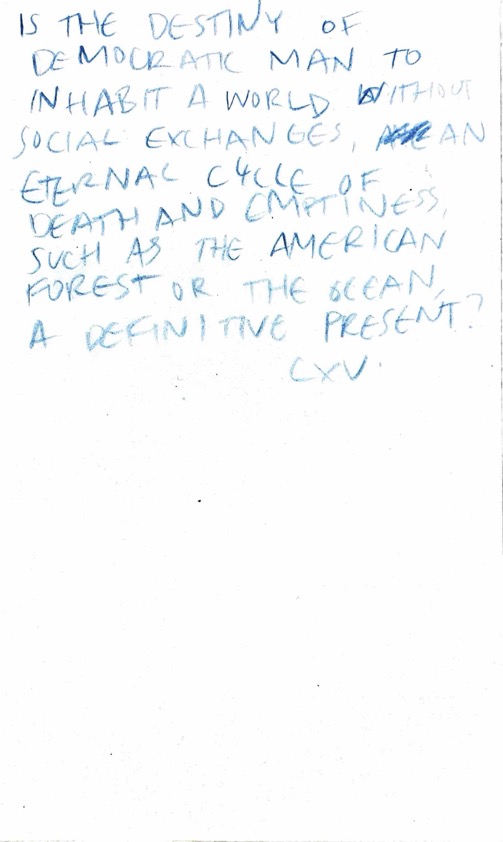 IS THE DESTINY OF
DEMOCRATIC MAN TO
INHABIT A WORLD WITHOUT
SOCIAL EXCHANGES, AN
ETERNAL CYCLE OF
DEATH AND EMPTINESS,
SUCH AS THE AMERICAN
FOREST OR THE OCEAN,
A DEFINITIVE PRESENT?
CXV.